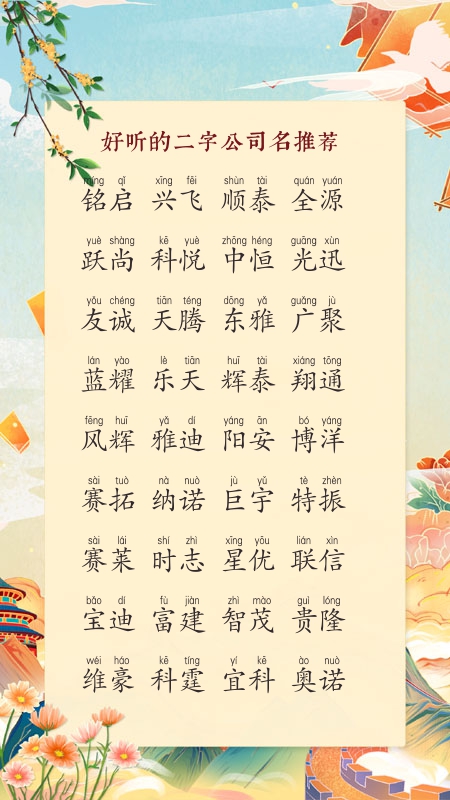 好听的二字公司名推荐
míng qǐ xīng fēi shùn tài quán yuán
铭启 兴飞 顺泰 全源
yuè shàng kē yuè zhōng héng guāng xùn
跃尚 科悦 中恒 光迅
yǒu chéng tiān téng dōng yǎ guǎng jù
友诚 天腾 东雅 广聚
lán yào lè tiān huī tài xiáng tōng
蓝耀 乐天 辉泰 翔通
fēng huī yǎ dí yáng ān bó yáng
风辉 雅迪 阳安 博洋
sài tuò nà nuò jù yǔ tè zhèn
赛拓 纳诺 巨宇 特振
sài lái shí zhì xīng yōu lián xìn
赛莱 时志 星优 联信
bǎo dí fù jiàn zhì mào guì lóng
宝迪 富建 智茂 贵隆
wéi háo kē tíng yí kē ào nuò
维豪 科霆 宜科 奥诺